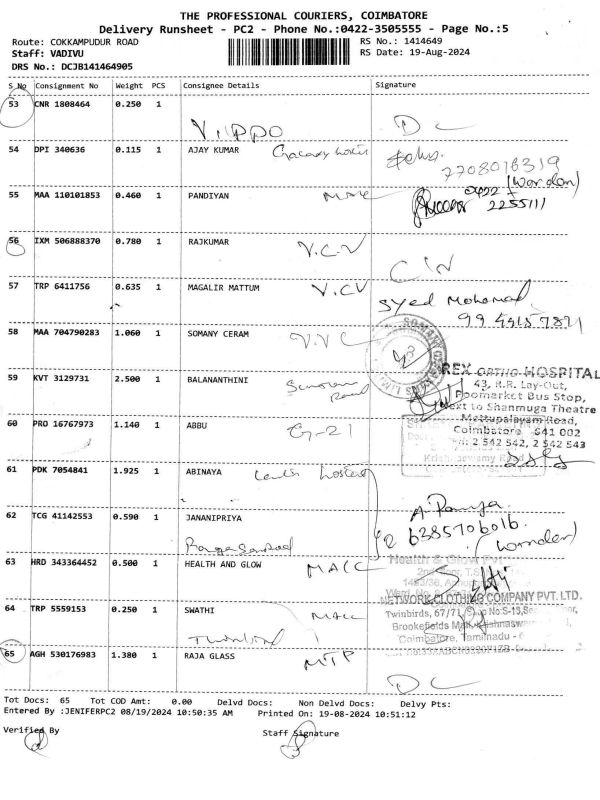 THE PROFESSIONAL COURIERS, COIMBATORE
Delivery Runsheet - PC2 - Phone No.:0422-3505555 - Page No.:5
Route: COKKAMPUDUR ROAD
RS No.: 1414649
Staff: VADIVU
RS Date: 19-Aug-2024
DRS No.: DCJB141464905
S_No Consignment No Weight PCS Consignee Details Signature
53 CNR 1808464 0.250 1
DC
54 DPI 340636 0.115 1 AJAY KUMAR
7708016319
(Warden)
55 MAA 110101853 0.460 1 PANDIYAN
0422
2255111
56 IXM 506888370 0.780 1 RAJKUMAR V.C.V
57 TRP 6411756 0.635 1 MAGALIR MATTUM V.CV
Syed Mohamad
58 MAA 704790283 1.060 1 SOMANY CERAM
59 KVT 3129731 2.500 1 BALANANTHINI
REX ORTHO HOSPITAL
43, R.R. Lay-Out,
Poomarket Bus Stop,
Next to Shanmuga Theatre
Mettupalayam Road,
Coimbatore - 641 002
2 542 542, 2 542 543
60 PRO 16767973 1.140 1 ABBU G-21
61 PDK 7054841 1.925 1 ABINAYA
62 TCG 41142553 0.590 1 JANANIPRIYA
A. Ramya
6385706016
(Warden)
63 HRD 343364452 0.500 1 HEALTH AND GLOW
Health & Glow Pvt
64 TRP 5559153 0.250 1 SWATHI
NETWORK CLOTHING COMPANY PVT. LTD.
Twinbirds, 67/71, Shop No:S-13,
Brookefields
Coimbatore, Tamilnadu - 6
65 AGH 530176983 1.380 1 RAJA GLASS MTP
DC
Tot Docs: 65 Tot COD Amt: 0.00 Delvd Docs: Non Delvd Docs: Delvy Pts:
Entered By :JENIFERPC2 08/19/2024 10:50:35 AM Printed On: 19-08-2024 10:51:12
Verified By Staff Signature